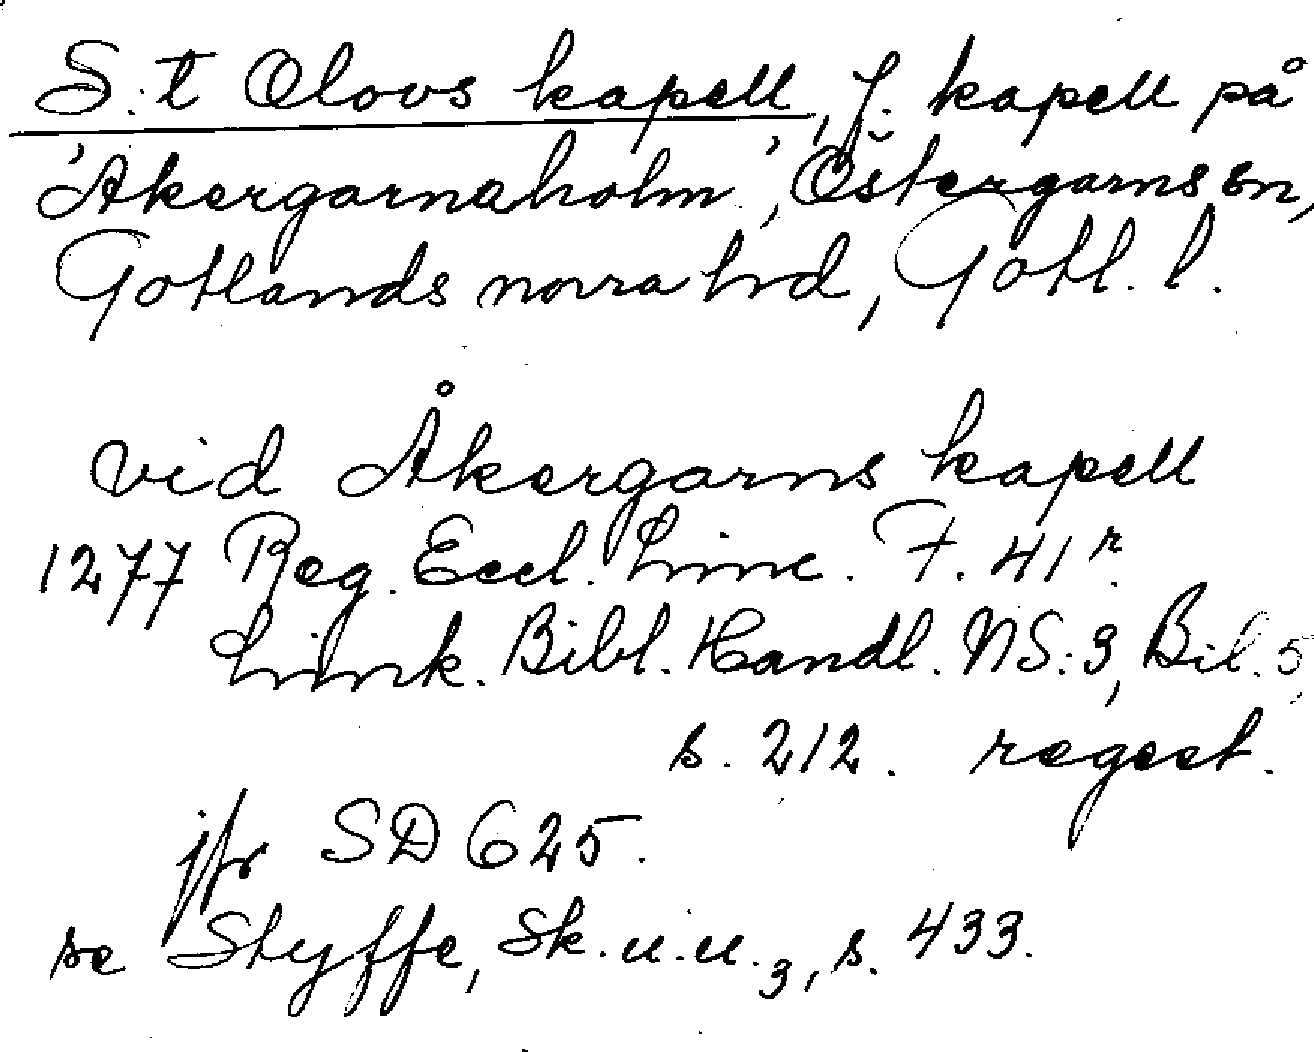 S:t Olovs kapell, f. kapell på
'Akergarnaholm', Östergarns sn,
Gotlands norra hd, Gotl. l.
vid Åkergarns kapell
1277 Reg. Eccl. Linc. F. 41 r.
Link. Bibl. Handl. NS: 3, Bil. 5,
s. 212. regest.
jfr SD 625.
se Styffe, Sk. u. u. 3, s. 433.